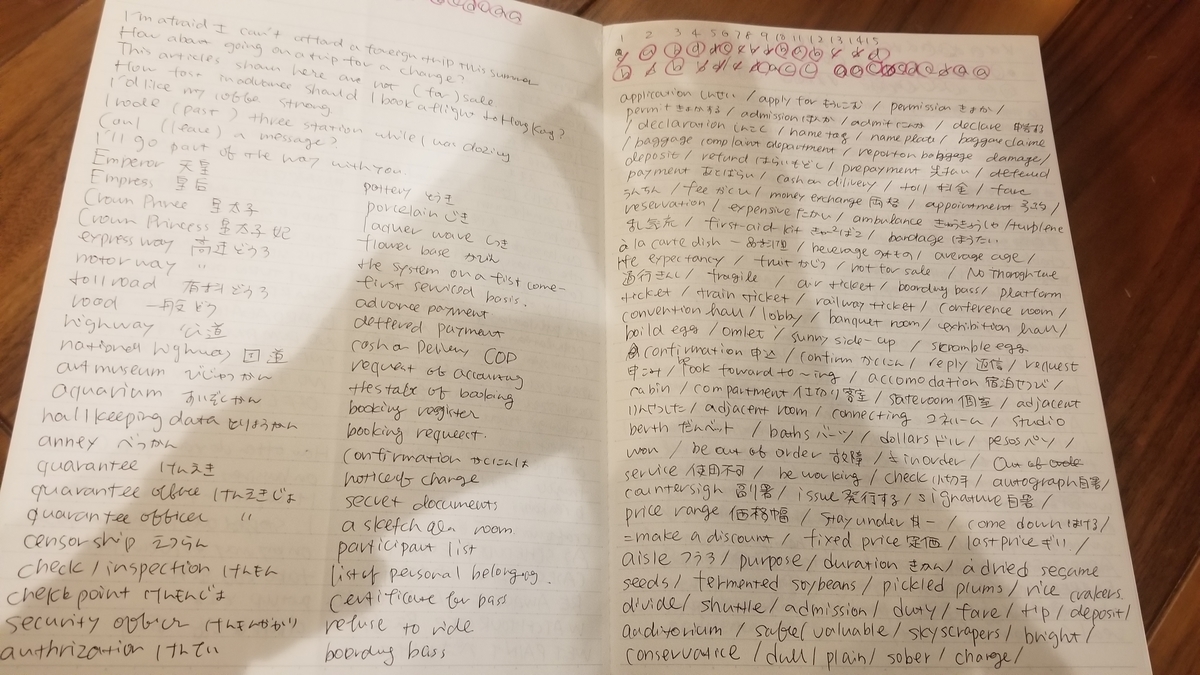 I'm afraid I can't afford a foreign trip this summer
How about going on a trip for a change?
This articles shown here are not (for) sale
How far in advance should I book a flight to Hong Kong?
I'd like my coffee strong
I rode (past) three station while I was dozing
Can I (leave) a message?
I'll go part of the way with you.
Emperor 天皇
Empress 皇后
Crown Prince 皇太子
Crown Princess 皇太子妃
express way 高速どうろ
motor way 〃
toll road 有料どうろ
road 一般どう
highway 公道
national highway 国道
art museum びじゅつかん
aquarium すいぞくかん
hall keeping data しりょうかん
annex べっかん
quarantee けんえき
quarantee office けんえきじょ
quarantee officer 〃
censorship えつらん
check / inspection けんもん
check point けんもんじょ
security officer けんもんがかり
authrization けんてい
pottery とうき
porcelain じき
laquer wave しっき
flower base かびん
the system on a first come-
first serviced basis.
advance payment
deffered payment
cash on Delivery COD
request of accounting
the state of booking
booking register
booking request.
confirmation かくにん
notice of change
secret documents
a sketch room
participant list
list of personal belonging.
certificate for pass
refuse to ride
boarding bass
1 2 3 4 5 6 7 8 9 10 11 12 13 14 15
application しんせい / apply for もうしこむ / permission きょか /
permit きょかする / admission / admit / declare 申告する
/ declaration しんこく / name tag / name plate / baggage claime
/ baggage complaint department / report on baggage damage /
deposit / refund はらいもどし / prepayment 先払い / deferred
payment あとばらい / cash on dilivery / toll 料金 / fare
うんちん / fee かいひ / money exchange 両替 / appointment
reservation / expensive たかい / ambulance きゅうきゅうしゃ / turplene
乱気流 / first-aid kit きゅうきゅうばこ / bandage ほうたい
à la carte dish 一品料理 / beverage のみもの / average age /
life expectancy / fruit かじつ / not for sale / No thoroghfue
通行きんし / fragile / air ticket / boarding bass / platform
ticket / train ticket / railway ticket / conference room /
convention hall / lobby / banquet room / exhibition hall /
boild egg / omlet / sunny side-up / skramble egg
confirmation 申込 / confirm かくにん / reply 返信 / request
申こみ / look foward to ~ing / accomodation 宿泊せつび /
cabin / compartment 仕切り客室 / sateroom 個室 / adjacent
りんせつした / adjacent room / connecting コネルーム / studio
berth だんベット / baths バーツ / dollars ドル / pesos ペソ /
won / be out of order 故障 / ≠ in order / Out of order
service 使用不可 / be working / check 小切手 / autograph 自署 /
countersigh 副署 / issue 発行する / signature 自署 /
price range 価格幅 / stay under 〃 / come down まける /
= make a discount / fixed price 定価 / last price ギリ /
aisle つうろ / purpose / duration きかん / a dried sesame
seeds / fermented soybeans / pickled plums / rice crakers.
divide / shuttle / admission / duty / fare / tip / deposit /
auditorium / safe / valuable / skyscrapers / bright /
conservative / dull / plain / sober / charge /